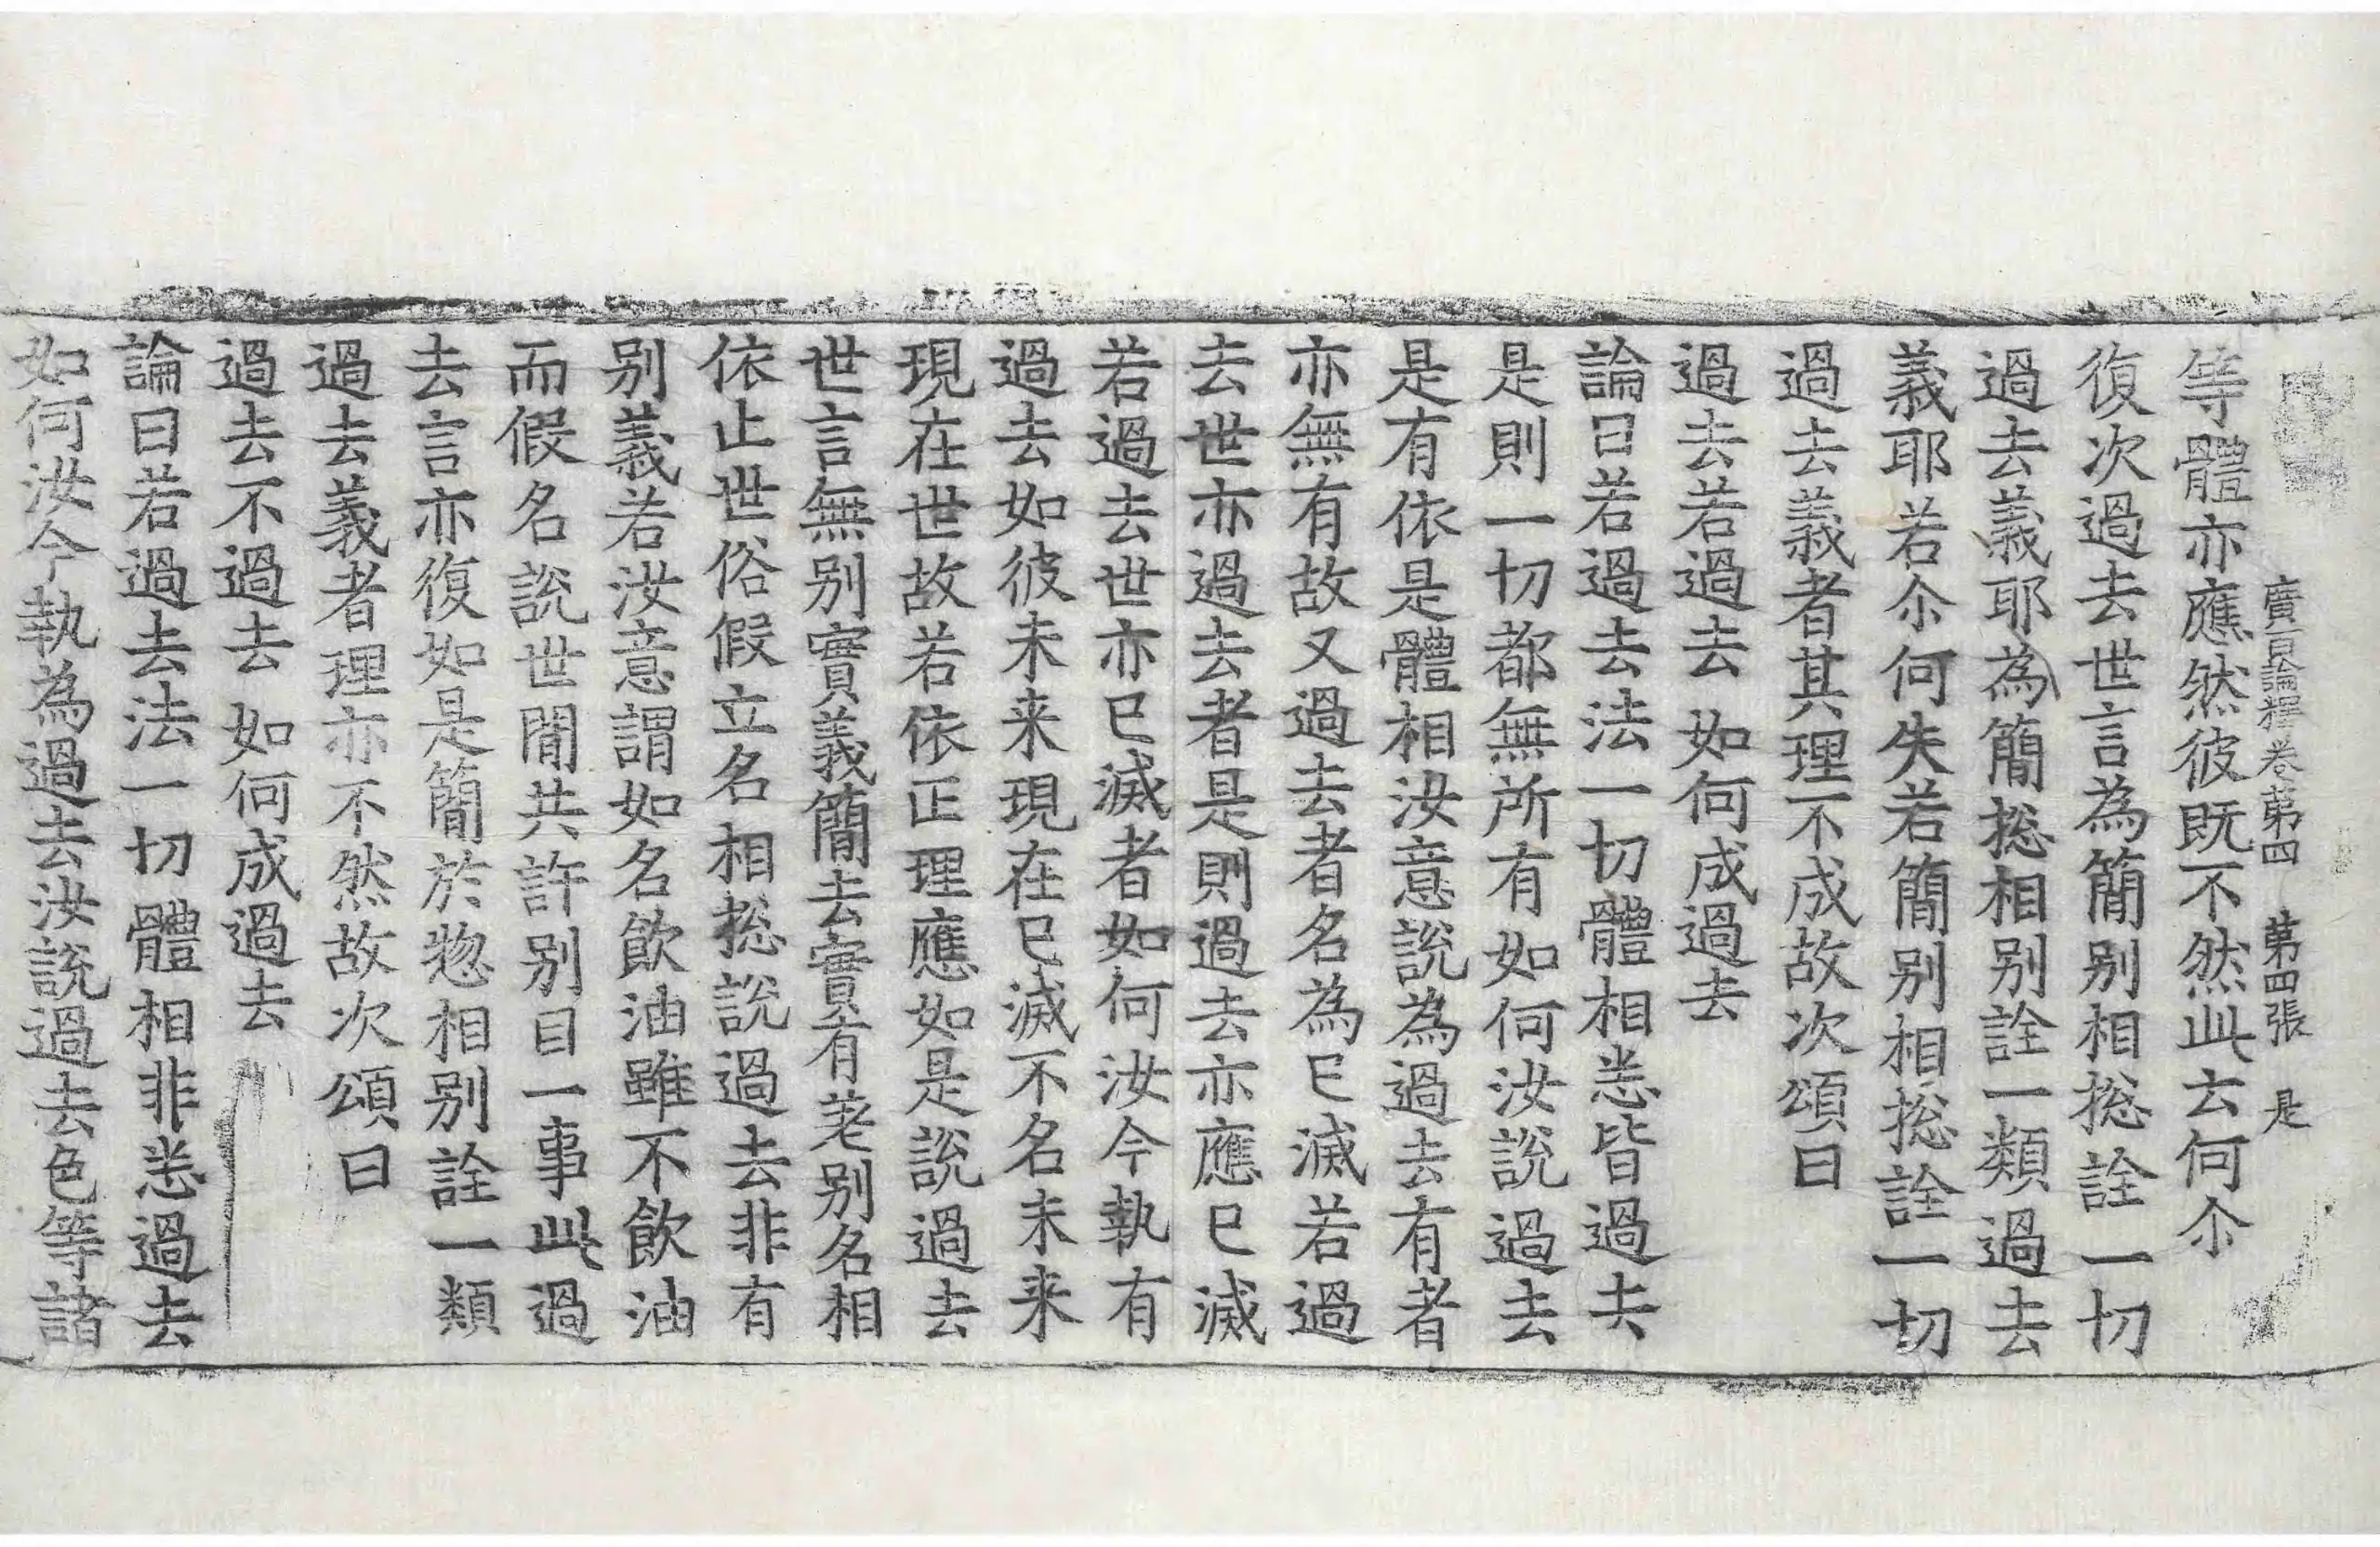 廣百論釋卷第四 第四張 是
等體亦應然彼既不然此云何尒
復次過去世言為簡別相捴詮一切
過去義耶為簡捴相別詮一類過去
義耶若尒何失若簡別相捴詮一切
過去義者其理不成故次頌曰
過去若過去 如何成過去
論曰若過去法一切體相悉皆過去
是則一切都無所有如何汝說過去
是有依是體相汝意說為過去有者
亦無有故又過去者名為已滅若過
去世亦過去者是則過去亦應已滅
若過去世亦已滅者如何汝今執有
過去如彼未来現在已滅不名未来
現在世故若依正理應如是說過去
世言無別實義簡去實有差別名相
依止世俗假立名相捴說過去非有
別義若汝意謂如名飲油雖不飲油
而假名說世間共許別目一事此過
去言亦復如是簡於惣相別詮一類
過去義者理亦不然故次頌曰
過去不過去 如何成過去
論曰若過去法一切體相非悉過去
如何汝今執為過去汝說過去色等諸